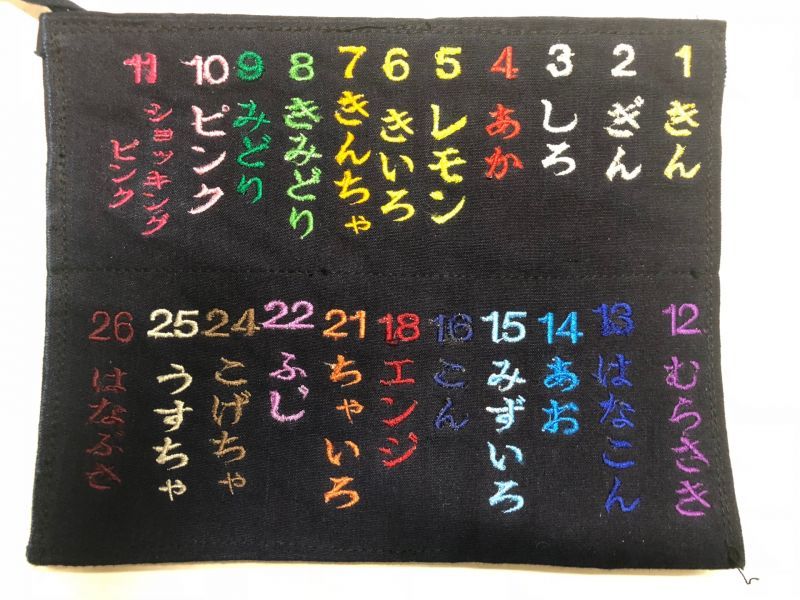 1 きん
2 ぎん
3 しろ
4 あか
5 レモン
6 きいろ
7 きんちゃ
8 きみどり
9 みどり
10 ピンク
11 ショッキング
ピンク
12 むらさき
13 はなこん
14 あお
15 みずいろ
16 こん
18 エンジ
21 ちゃいろ
22 ふじ
24 こげちゃ
25 うすちゃ
26 はなぶさ